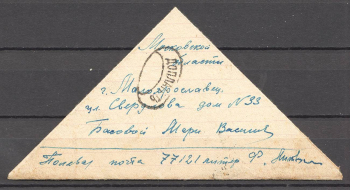 Московской
области
г. Малоярославец
ДОПЛАТИТЬ
ул. Свердлова дом № 33
Баковой Мери
Полевая почта 77121 литер Ф.